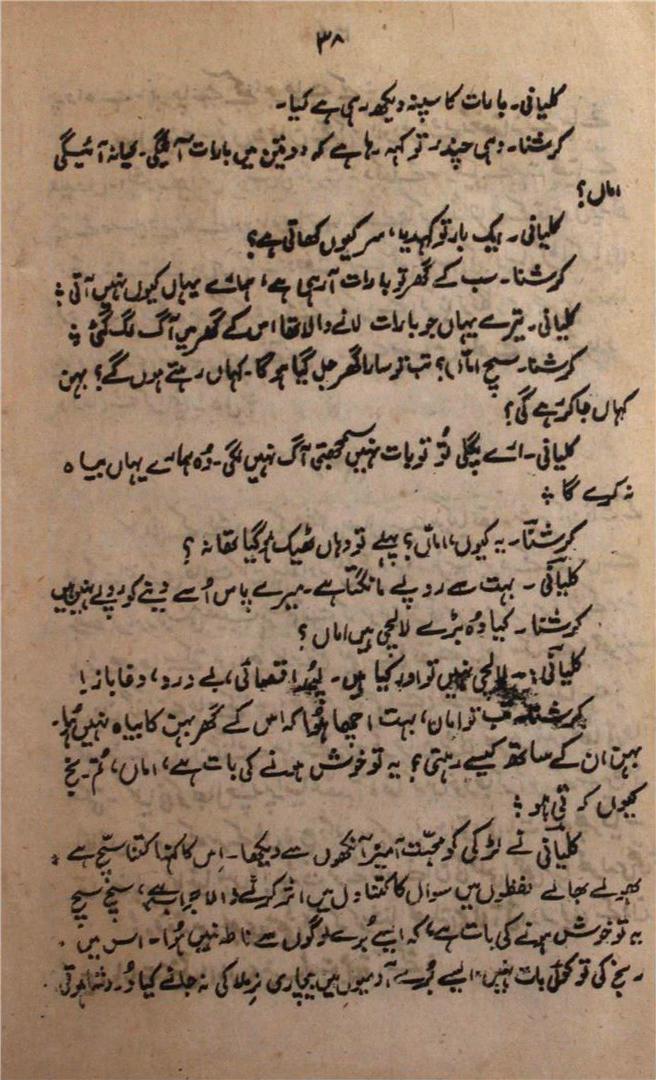 ۳۸
کلیانی۔ بارات کا سپنہ دیکھ رہی ہے کیا۔
کرشنا۔ وہی چندر تو کہہ رہا ہے کہ دو تین میں بارات آئیگی۔ کیا نہ آئیگی
اماں؟
کلیانی۔ ایک بار تو کہدیا، سر کیوں کھاتی ہے؟
کرشنا۔ سب کے گھر تو بارات آ رہی ہے، ہمارے یہاں کیوں نہیں آتی؛
کلیانی۔ تیرے یہاں جو بارات لانے والا تھا اس کے گھر میں آگ لگ گئی؛
کرشنا۔ سچ اماں؟ تب تو سارا گھر جل گیا ہوگا۔ کہاں رہتے ہوں گے؟ بہن
کہاں جا کر رہے گی؟
کلیانی۔ ارے پگلی تُو تو بات نہیں سمجھتی آگ نہیں لگی۔ وُہ ہمارے یہاں بیاہ
نہ کرے گا؛
کرشنا۔ یہ کیوں، اماں؟ پہلے تو وہاں ٹھیک ہو گیا تھا نہ؟
کلیانی۔ بہت سے روپے مانگتا ہے۔ میرے پاس اُسے دینے کو روپے نہیں ہیں
کرشنا۔ کیا وُہ بڑے لالچی ہیں اماں؟
کلیانی:۔ لالچی نہیں تو اور کیا ہیں۔ پُورا قصائی، بے درد، دغاباز!
کرشنا۔ تب تو اماں، بہت اچھا ہُوا کہ اس کے گھر بہن کا بیاہ نہیں ہُوا۔
بہن ان کے ساتھ کیسے رہتی؟ یہ تو خوش ہونے کی بات ہے، اماں، تُم رنج
کیوں کرتی ہو؛
کلیانی نے لڑکی کو محبت آمیز آنکھوں سے دیکھا۔ اِس کا کہنا کتنا سچ ہے؛
بھولے بھالے لفظوں میں سوال کا کتنا دل میں اثر کرنے والا جواب ہے، سچ مچ
یہ تو خوش ہونے کی بات ہے، کہ ایسے بُرے لوگوں سے ناطہ نہیں ہُوا۔ اس میں
رنج کی تو کوئی بات نہیں، ایسے بُرے آدمیوں میں بیچاری نرملا کی نہ جانے کیا دُردشا ہوتی